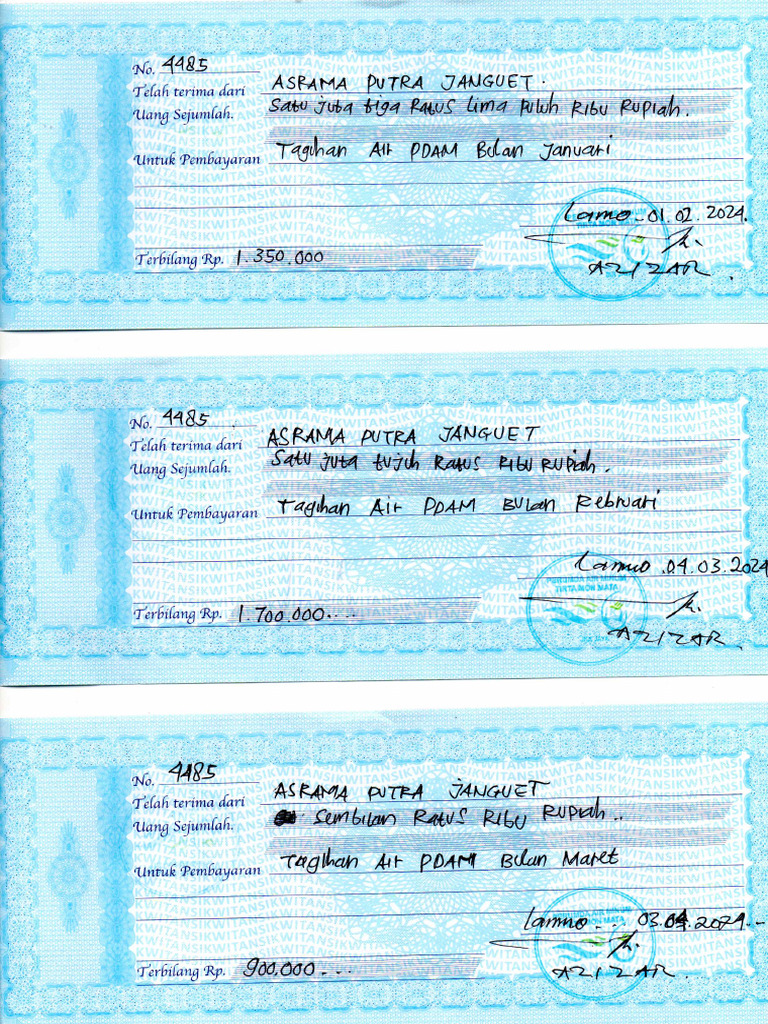 No. 4485
Telah terima dari ASRAMA PUTRA JANGUET.
Uang Sejumlah. Satu juta tiga Ratus Lima Puluh Ribu Rupiah.
Untuk Pembayaran Tagihan Air PDAM Bulan Januari
Lamno - 01.02.2024.
Terbilang Rp. 1.350.000
AZIZAR.
No. 4485
Telah terima dari ASRAMA PUTRA JANGUET
Uang Sejumlah. Satu juta tujuh Ratus Ribu Rupiah.
Untuk Pembayaran Tagihan Air PDAM Bulan Februari
Lamno .04.03.2024
PERUMDA AIR MINUM
TIRTA MON MATA
Terbilang Rp. 1.700.000....
AZIZAR.
No. 4485
Telah terima dari ASRAMA PUTRA JANGUET
Uang Sejumlah. Sembilan Ratus Ribu Rupiah..
Untuk Pembayaran Tagihan Air PDAM Bulan Maret
Lamno... 03.04.2024.--
Terbilang Rp. 900.000-...
AZIZAR.